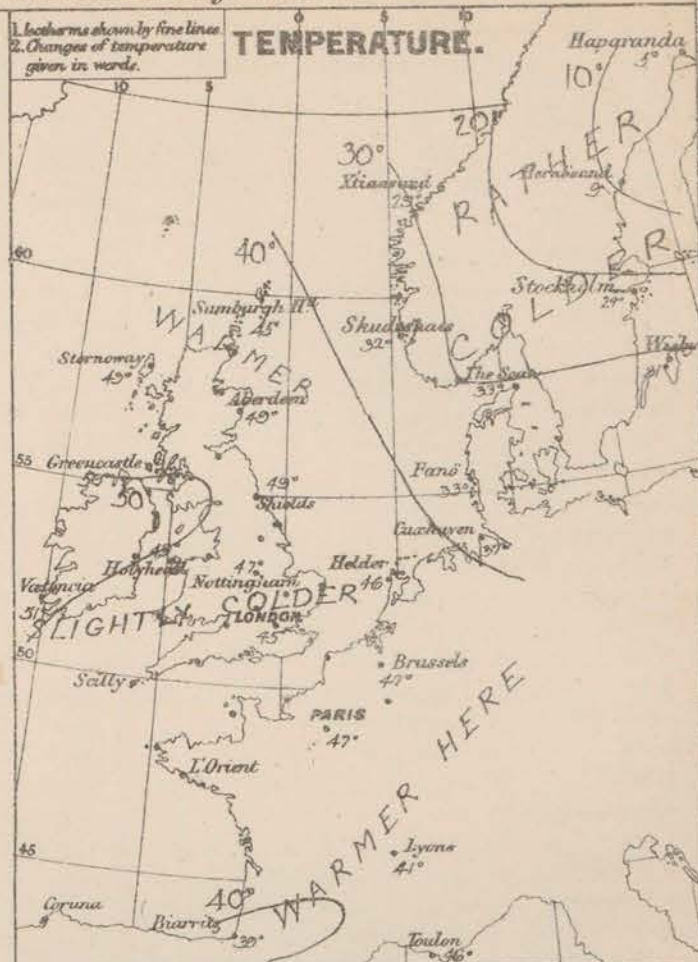 1. Isotherms shown by fine lines
2. Changes of temperature
given in words.
TEMPERATURE.
0
10
10
5
Haparanda
5°
10°
20°
30°
Xtiansund
Hernösand
9°
RATHER
COLDER
40°
60
Sumburgh Hd
45°
WARMER
Skudesnaes
32°
Stockholm
29°
Wisby
31°
The Scaw
33°
Stornoway
49°
Aberdeen
49°
55
Greencastle
50
49°
Shields
Fanö
33°
Cuxhaven
Holyhead
47°
Nottingham
Helder
46
Valencia
51°
LIGHTLY COLDER
LONDON
45
50
Scilly
Brussels
47°
PARIS
47°
L'Orient
WARMER HERE
45
Lyons
41°
Coruna
40°
Biarritz
39°
Toulon
46°